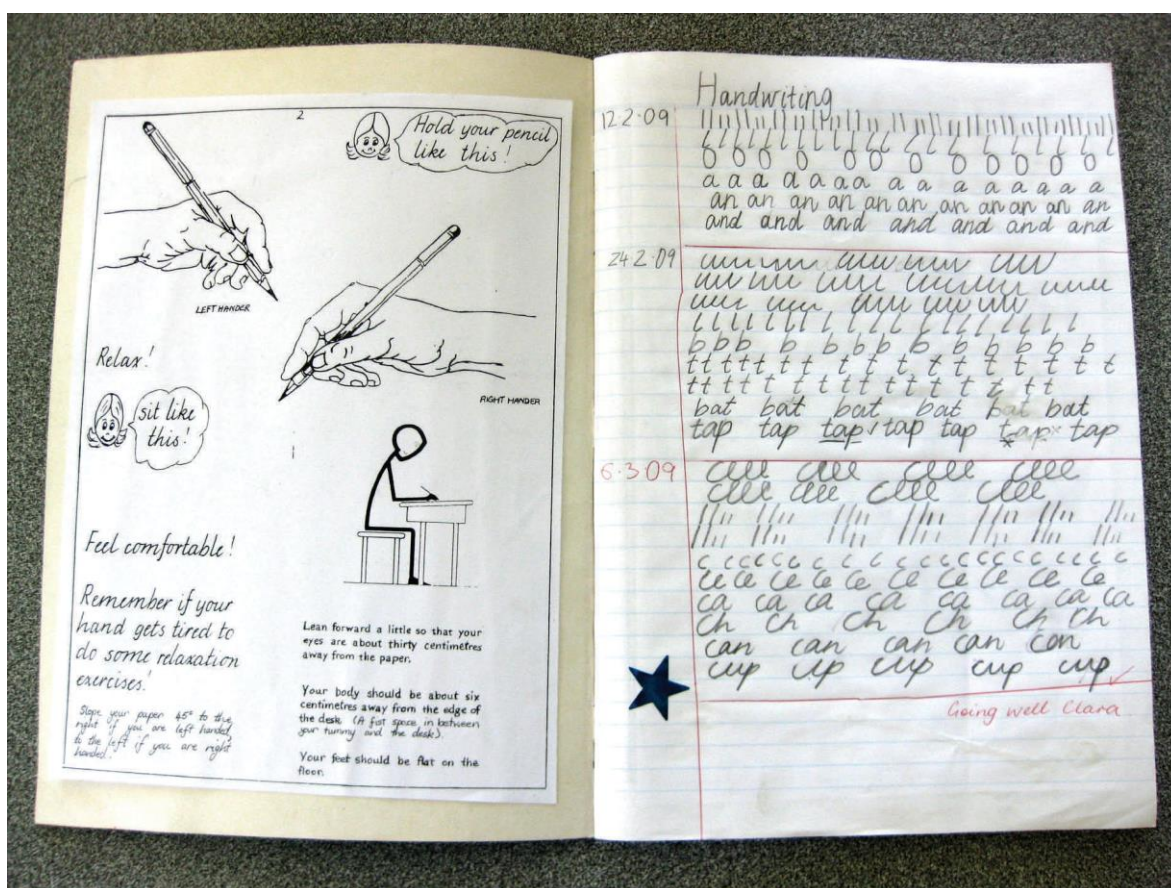 2
Hold your pencil
like this!
LEFT HANDER
RIGHT HANDER
Relax!
sit like
this!
Feel comfortable!
Remember if your
hand gets tired to
do some relaxation
exercises!
Slope your paper 45° to the
right if you are left handed,
to the left if you are right
handed.
Lean forward a little so that your
eyes are about thirty centimetres
away from the paper.
Your body should be about six
centimetres away from the edge of
the desk. (A fist space in between
your tummy and the desk).
Your feet should be flat on the
floor.
Handwriting
12.2.09
o o o o o o o o o o o o
a a a a a a a a a a a a a a a
an an an an an an an an an an an an
and and and and and and and
24.2.09
b b b b b b b b b b b b b
t t t t t t t t t t t t t t t t
t t t t t t t t t t t t t t t
bat bat bat bat bat bat
tap tap tap tap tap tap tap
6.3.09
c c c c c c c c c c c c c c c c
ce ce ce ce ce ce ce ce ce ce
ca ca ca ca ca ca ca ca
ch ch ch ch ch ch
can can can can can
cup cup cup cup cup
Going well Clara